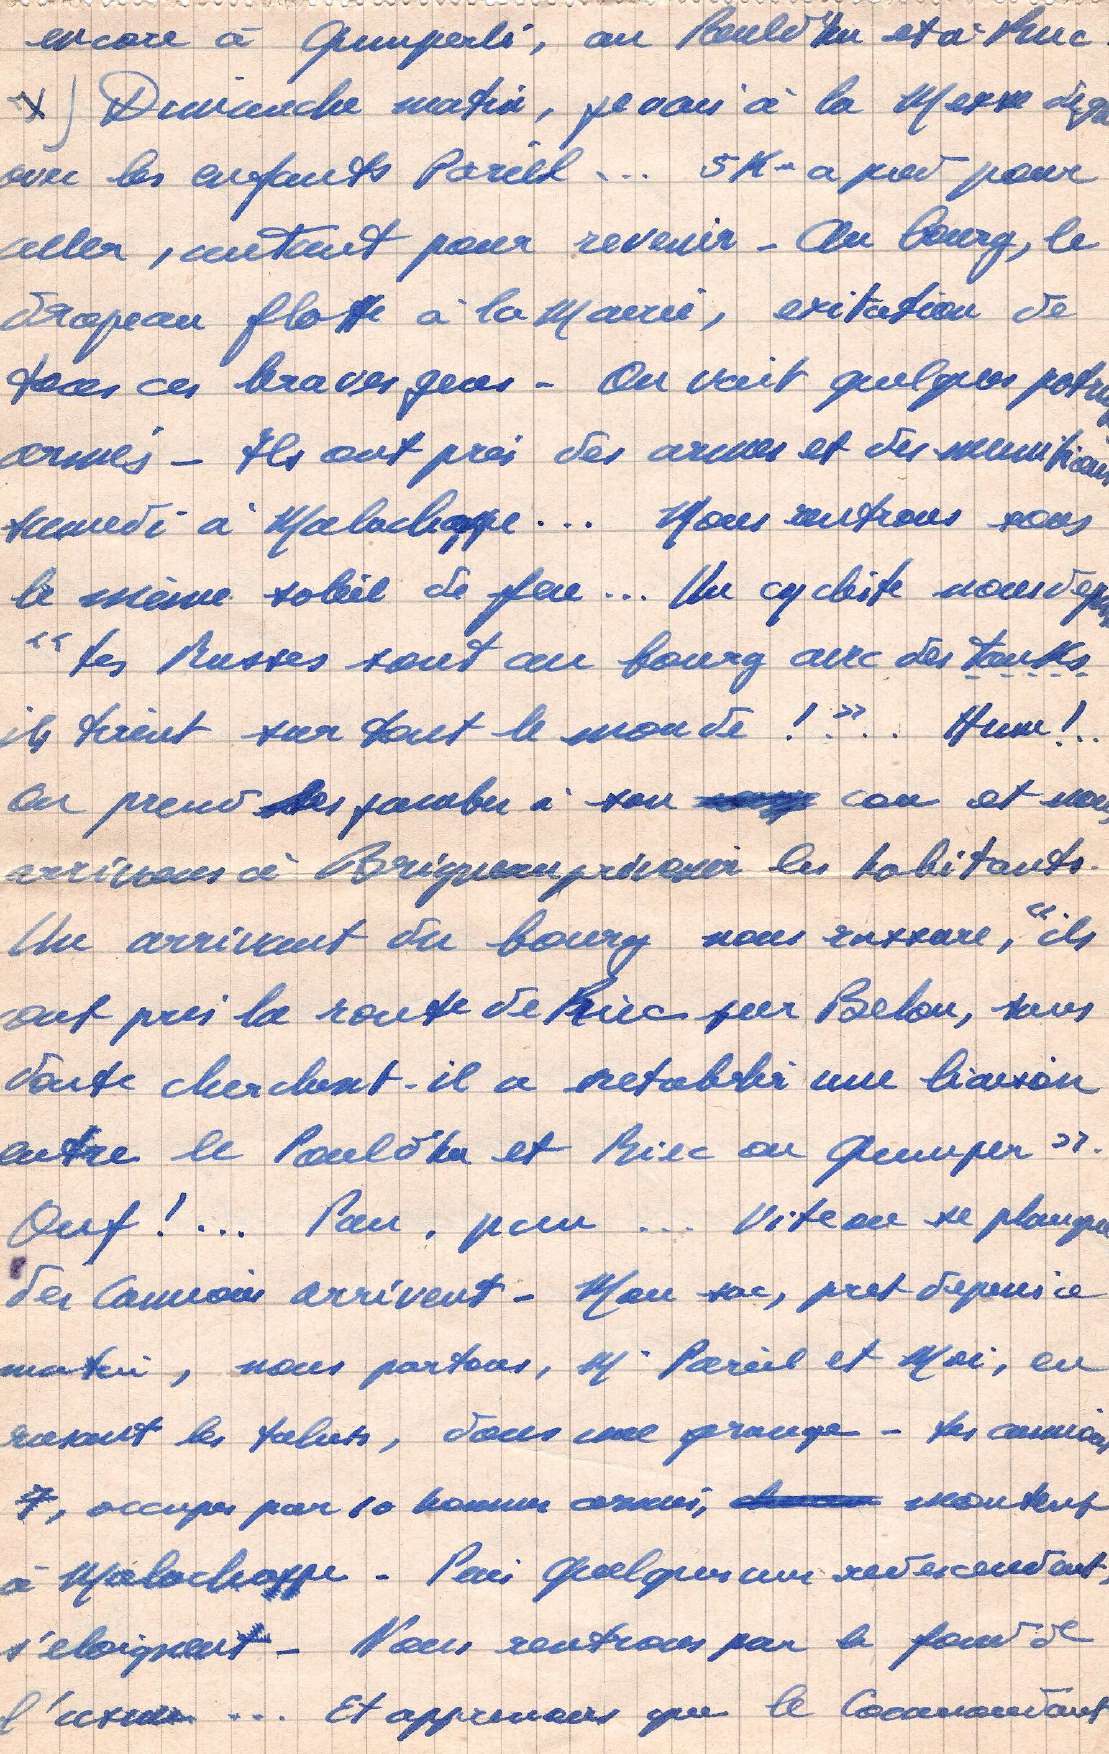 encore à Quimperlé, au Pouldhu et à Riec.
x) Dimanche matin, je vais à la Messe
avec les enfants Pareil ... 5 K à pied pour
aller, autant pour revenir - Au bourg, le
drapeau flotte à la Mairie, exitation de
tous ces braves gens - On voit quelques
armés - Ils ont pris des armes et des munitions
samedi à Malachappe ... Nous rentrons sous
le même soleil de feu ... Un cycliste nous
"Les Russes sont au bourg avec des tanks
ils tirent sur tout le monde !" .. Hum !..
On prend les jambes à son cou et nous
arrivons à Brigneau prévenir les habitants.
Un arrivant du bourg nous rassure, "ils
ont pris la route de Riec sur Belon, sans
doute cherchent-il a retablir une liaison
entre le Pouldhu et Riec ou Quimper".
Ouf ! ... Pan, pan ... Vite on se planque
des Camions arrivent - Mon sac, pret depuis ce
matin, nous partons, Mr Pareil et Moi, en
rasant les talus, dans une grange - Les camions
7, occupés par 10 hommes armés, montent
à Malachappe - Puis quelques uns redescendent,
s'eloignent - Nous rentrons par le fond de
l'usine ... Et apprenons que le Commandant